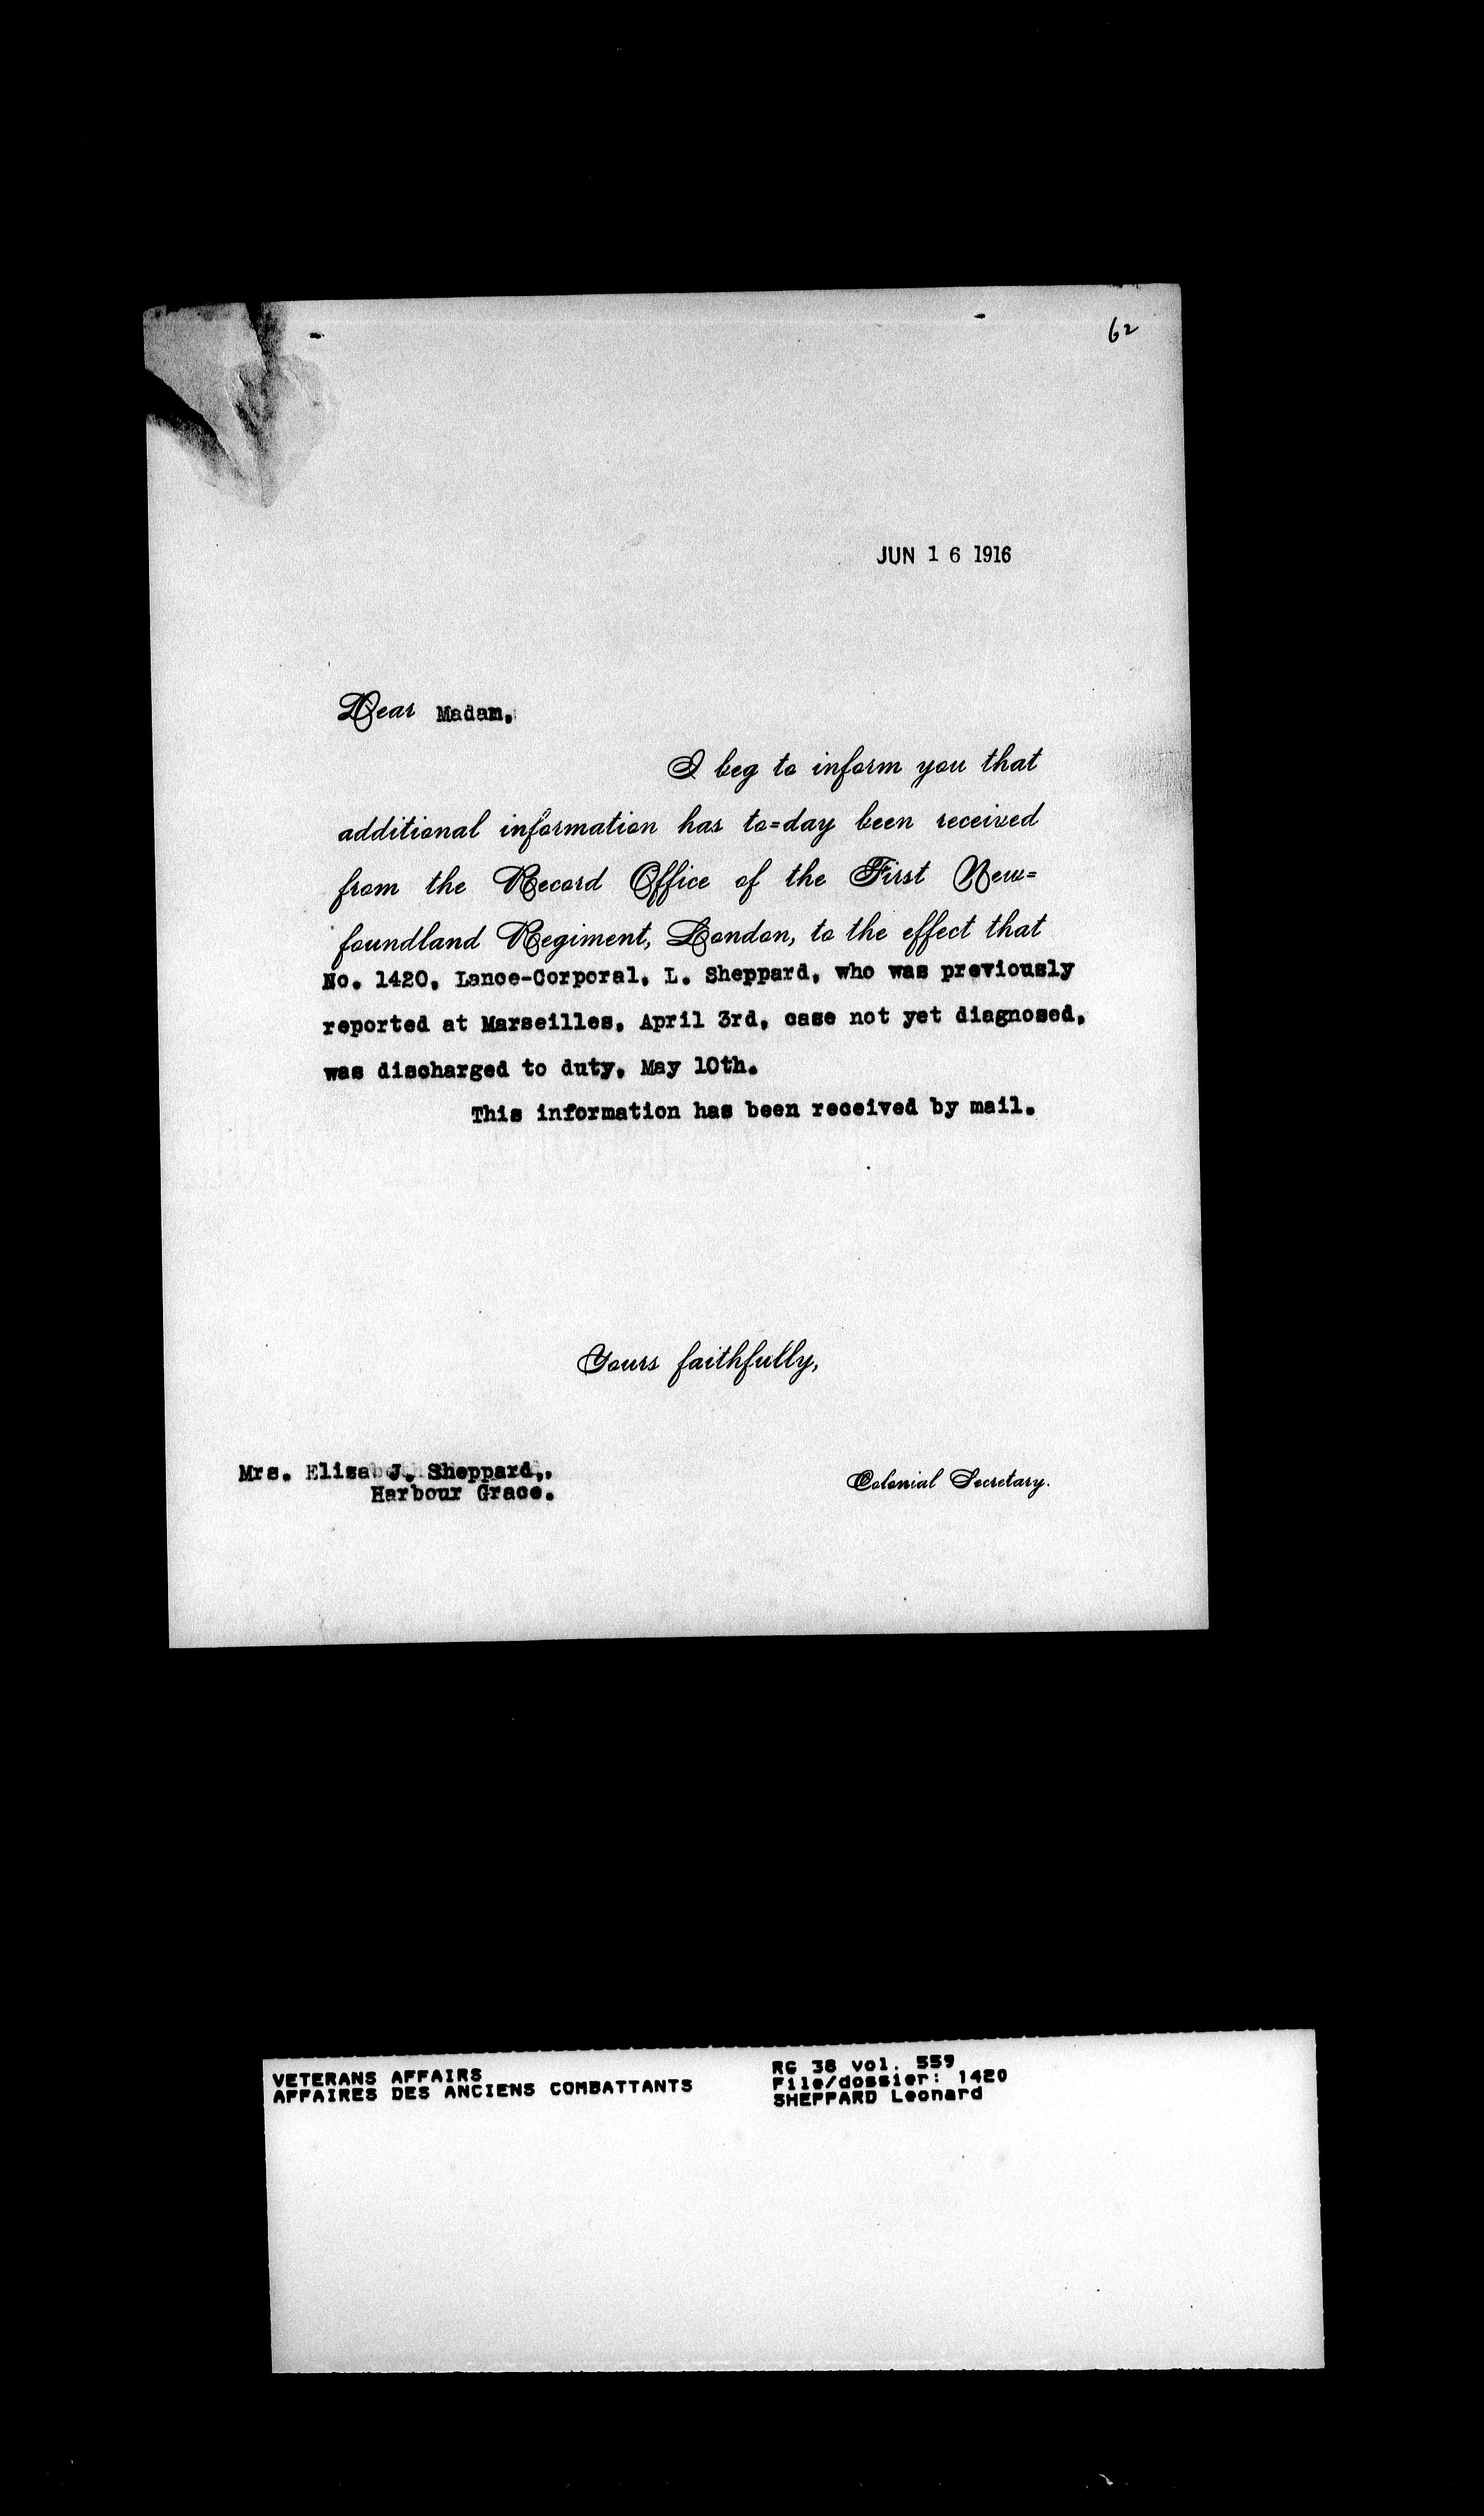 62
JUN 16 1916
Dear Madam,
I beg to inform you that
additional information has to=day been received
from the Record Office of the First New=
foundland Regiment, London, to the effect that
No. 1420, Lance-Corporal, L. Sheppard, who was previously
reported at Marseilles, April 3rd, case not yet diagnosed,
was discharged to duty, May 10th.
This information has been received by mail.
Yours faithfully,
Mrs. Eliza J. Sheppard,.
Harbour Grace.
Colonial Secretary.
VETERANS AFFAIRS
AFFAIRES DES ANCIENS COMBATTANTS
RG 38 Vol. 559
File/dossier: 1420
SHEPPARD Leonard